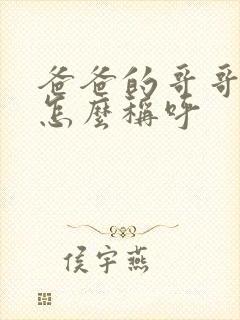 爸爸的哥哥
怎麼稱呼
侯宇燕